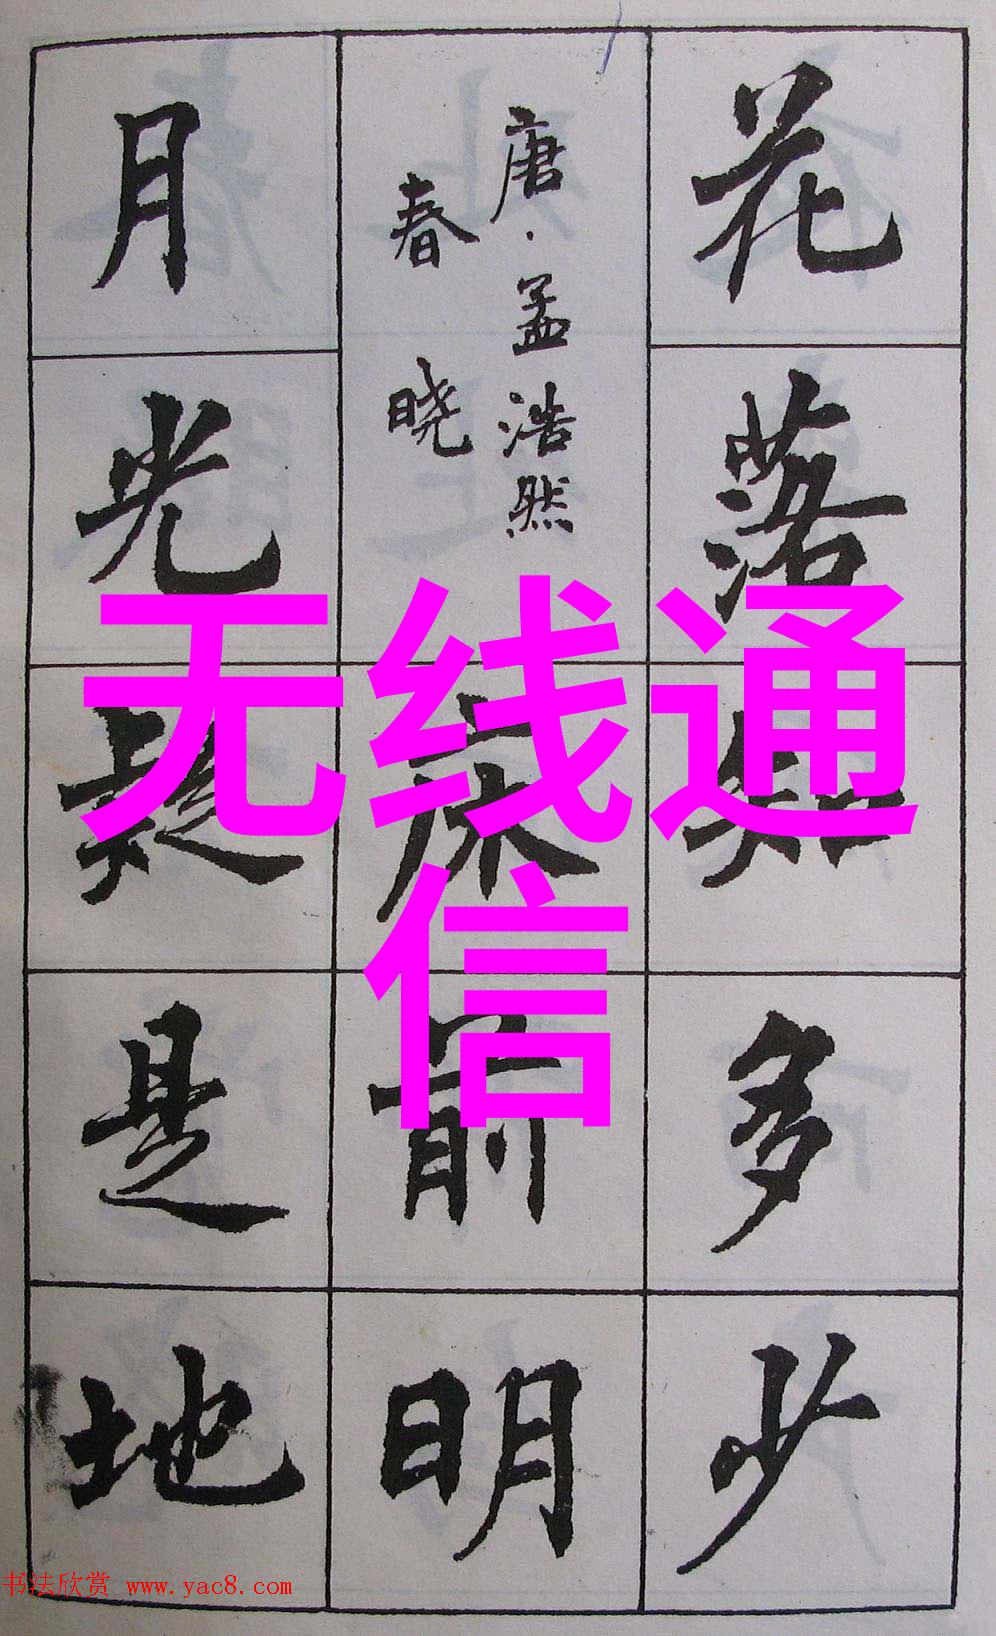 花落知多少
唐·孟浩然
春晓
床前明
月光疑是地
无线通
信
书法欣赏 www.yac8.com